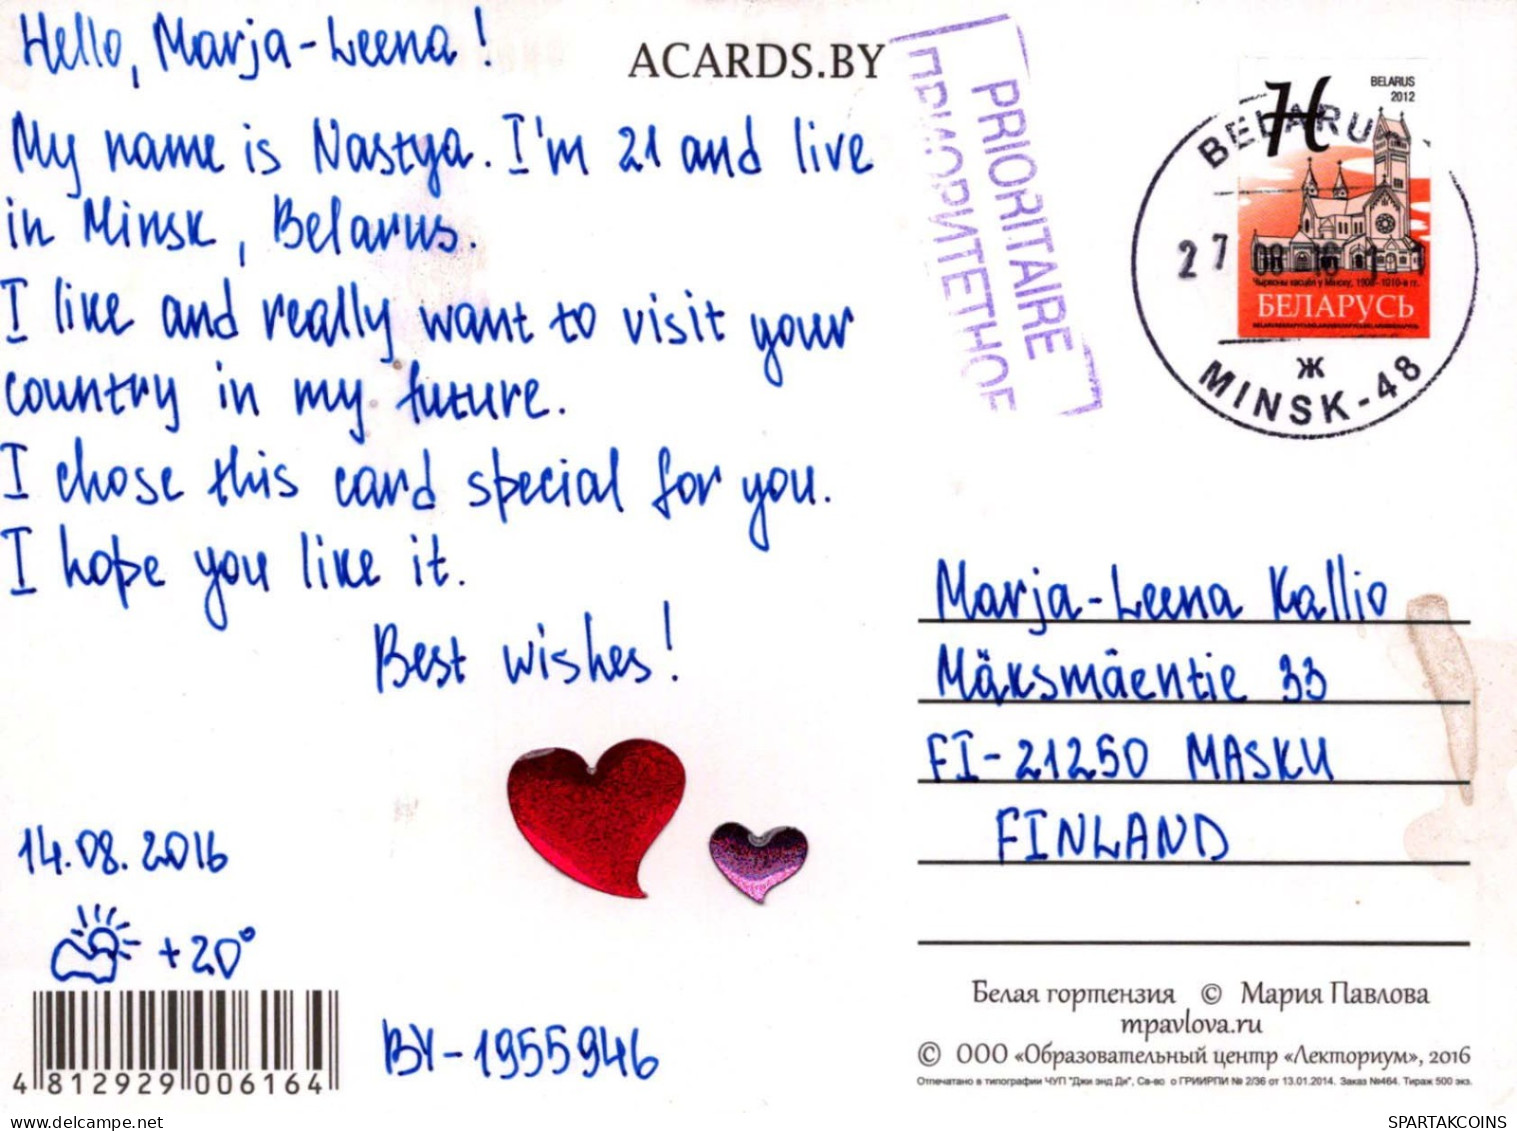 Hello, Marja-Leena!
My name is Nastya. I'm 21 and live
in Minsk, Belarus.
I like and really want to visit your
country in my future.
I chose this card special for you.
I hope you like it.
Best wishes!
14.08.2016
+20°
4 812929 006164
BY-1955946
ACARDS.BY
PRIORITAIRE
ПРИОРИТЕТНОЕ
H
BELARUS
2012
BELARUS
27 08 16
Чырвоны касцёл у Мінску, 1908-1010-я гг.
БЕЛАРУСЬ
Ж
MINSK-48
Marja-Leena Kallio
Mäksmäentie 33
FI-21250 MASKU
FINLAND
Белая гортензия © Мария Павлова
mpavlova.ru
© ООО «Образовательный центр «Лекториум», 2016
Отпечатано в типографии ЧУП "Джи энд Ди", Св-во о ГРИИРПИ № 2/36 от 13.01.2014. Заказ №464. Тираж 500 экз.
www.delcampe.net
SPARTAKCOINS